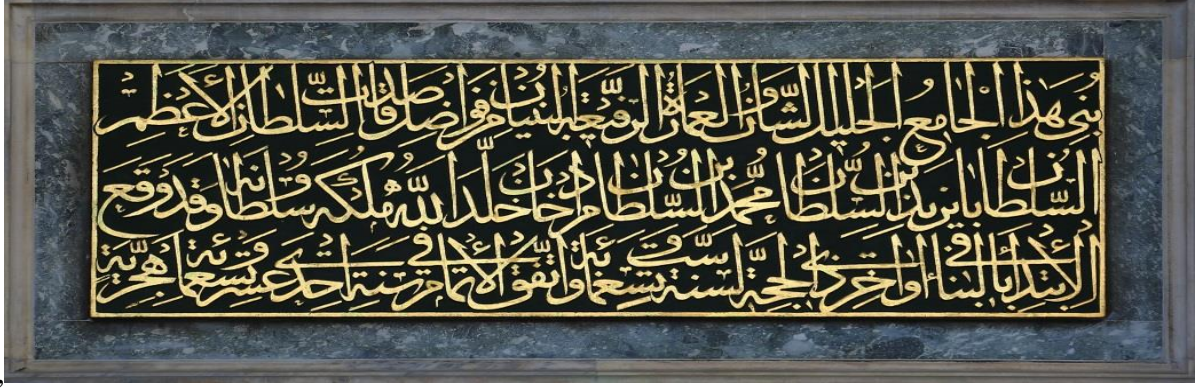 بني هذا الجامع الجليل الشأن والعمارة الرفيعة البنيان من فواضل صدقات السلطان الأعظم
السلطان بايزيد بن السلطان محمد بن السلطان مراد خان خلد الله ملكه وسلطانه وقد وقع
الابتداء بالبناء في أواخر ذي الحجة لسنة ست وتسعمائة واتفق الإتمام في سنة إحدى عشرة وتسعمائة هجرية